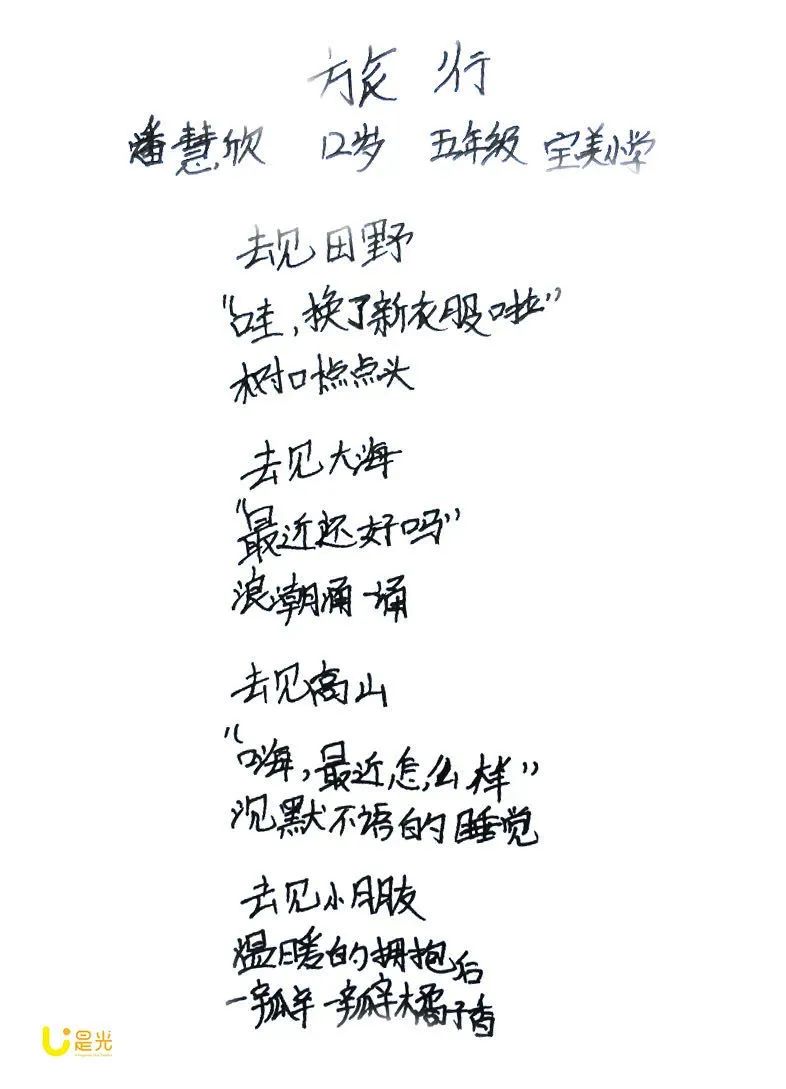 旅行
潘慧欣 12岁 五年级 宝美小学
去见田野
“哇，换了新衣服啦”
树口点点头
去见大海
“最近还好吗”
浪潮涌一涌
去见高山
“嗨，最近怎么样”
沉默不语的睡觉
去见小朋友
温暖的拥抱后
一瓣一瓣橘子香
是光